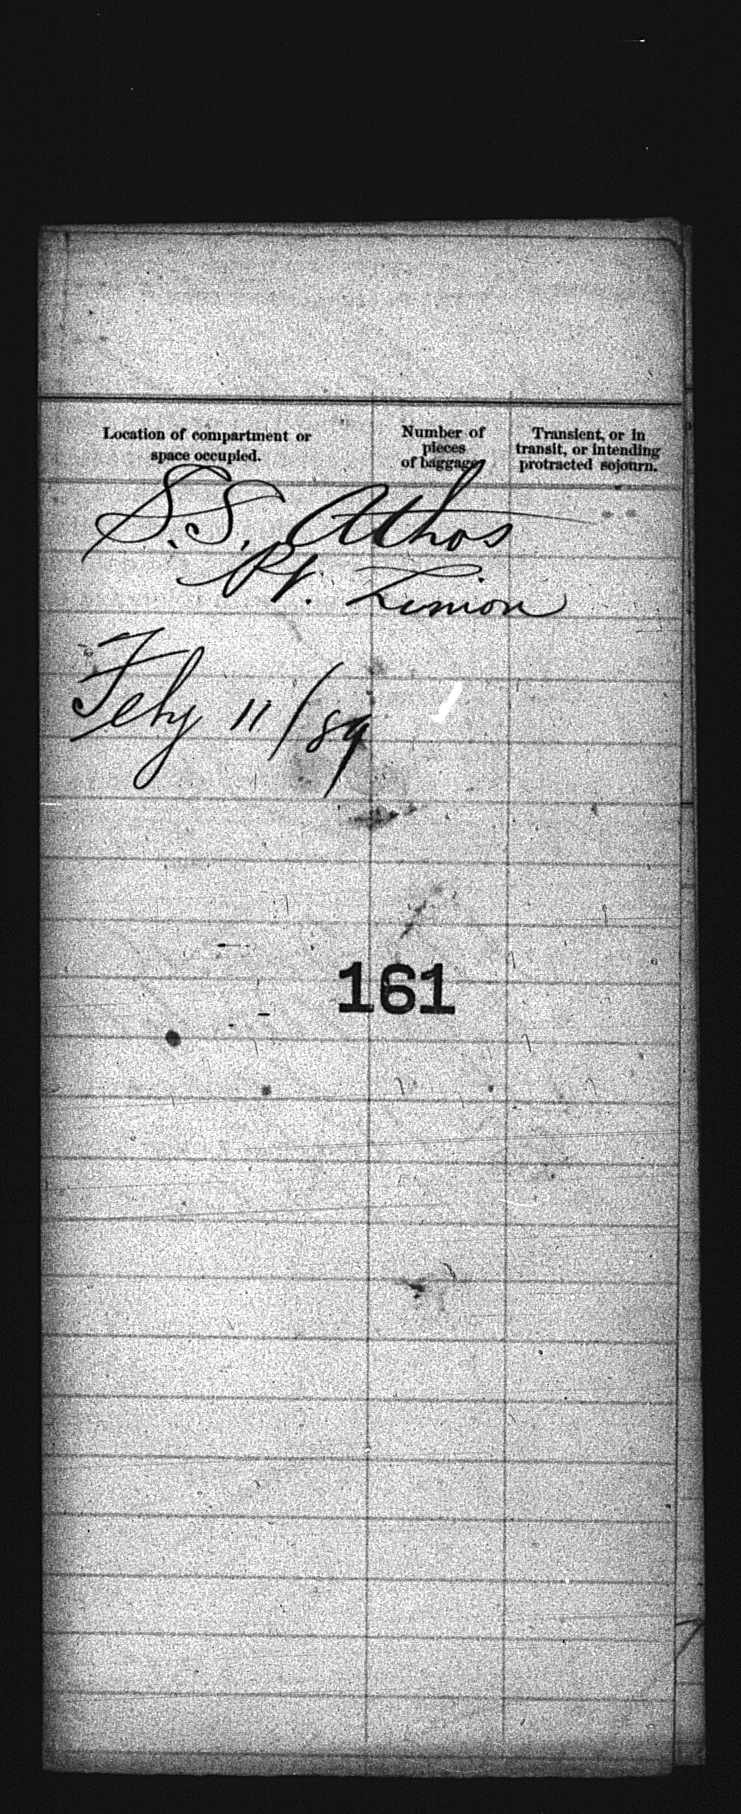 Location of compartment or
space occupied.
Number of
pieces
of baggage
Transient, or in
transit, or intending
protracted sojourn.
S.S. Athos
Pt. Limon
Feby 11/89
161